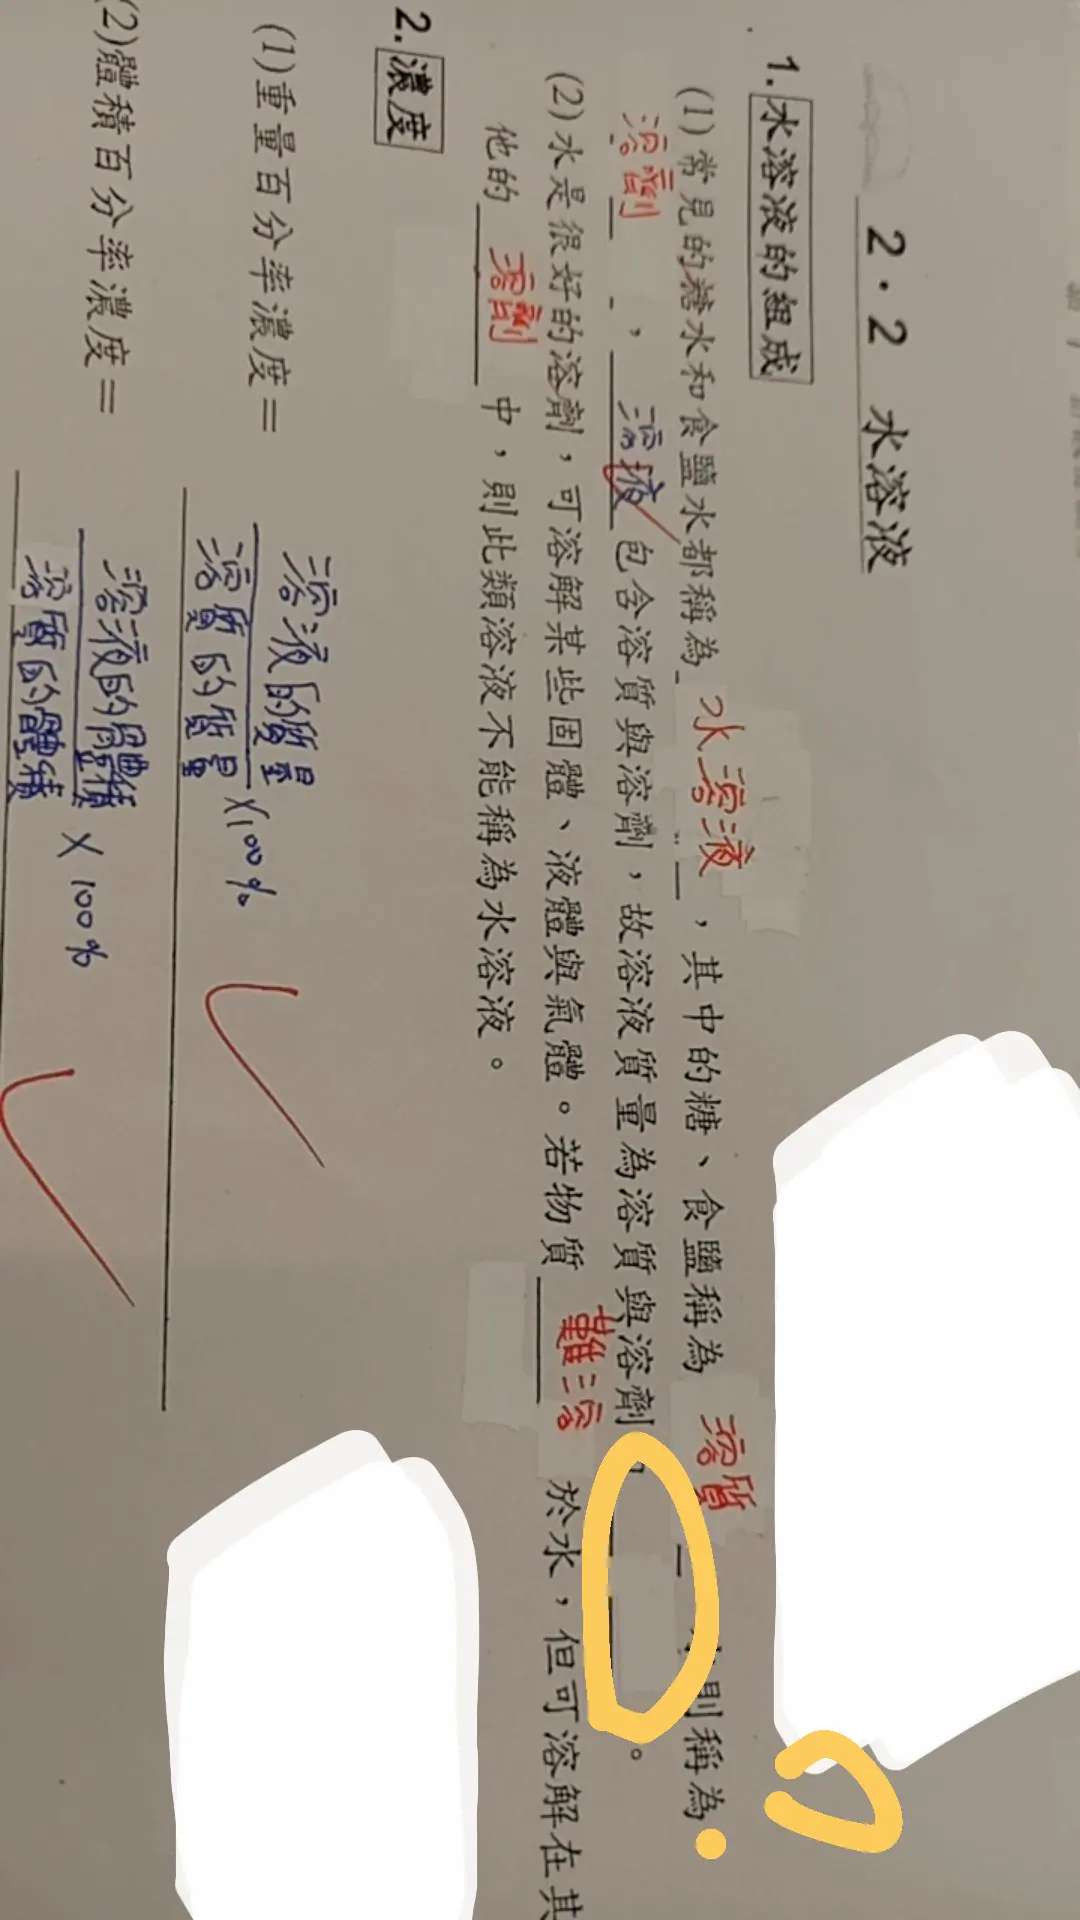 2．2 水溶液
1.水溶液的組成
(1)常見的糖水和食鹽水都稱為 水溶液 ，其中的糖、食鹽稱為 溶質 水則稱為
溶劑 ， 溶液 包含溶質與溶劑，故溶液質量為溶質與溶劑 。
(2)水是很好的溶劑，可溶解某些固體、液體與氣體。若物質 難溶 於水，但可溶解在其
他的 溶劑 中，則此類溶液不能稱為水溶液。
2.濃度
溶液的質量
(1)重量百分率濃度＝ 溶質的質量 ×100%
溶液的體積
(2)體積百分率濃度＝ 溶質的體積 ×100%